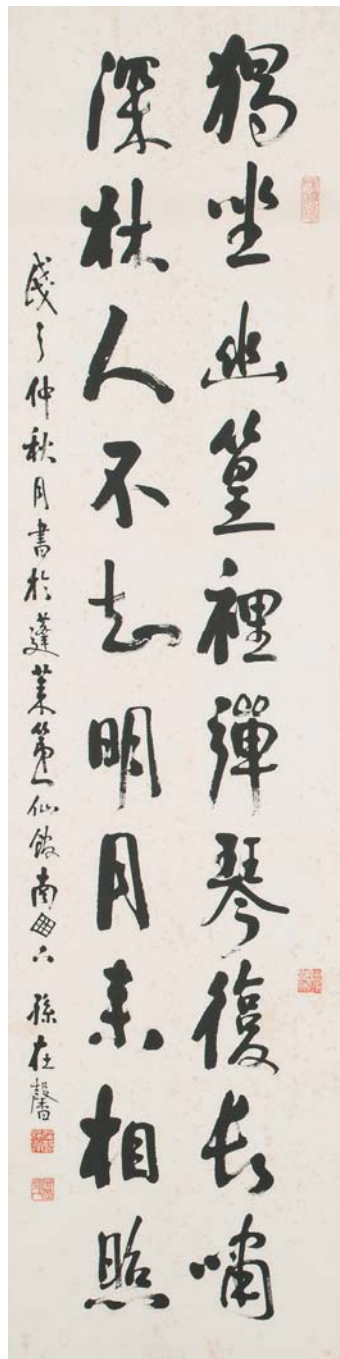 獨坐幽篁裡彈琴復長嘯
深林人不知明月来相照
戊子仲秋月書於蓬萊第一仙館南窗下 孫在馨